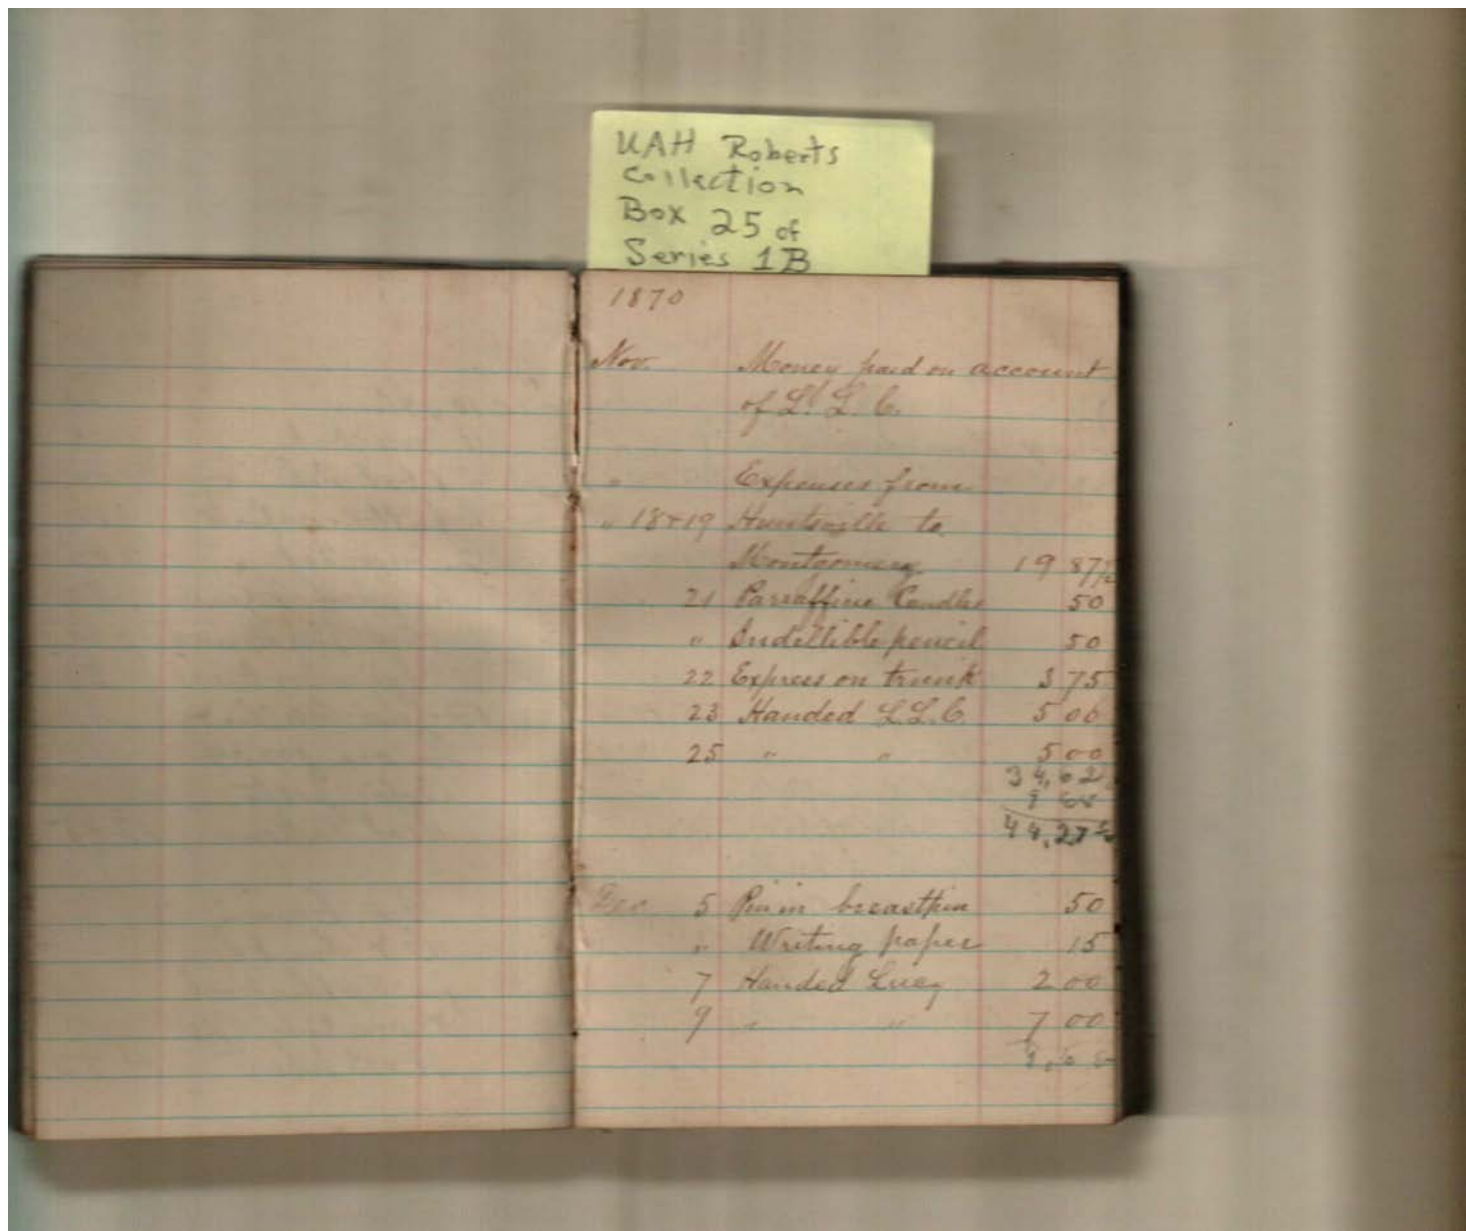 UAH Roberts
Collection
Box 25 of
Series 1B
1870
Nov. Money paid on account
of L. L. C.
" Expenses from
" 18+19 Huntsville to
Montgomery 19 87½
21 Parraffine Candles 50
" Indellible pencil 50
22 Express on trunk 3 75
23 Handed L. L. C. 5 00
25 " " 5 00
34,62
9 65
44,27½
Dec. 5 Pin in breastpin 50
" Writing paper 15
7 Handed Lucy 2 00
9 " " 7 00
9,65